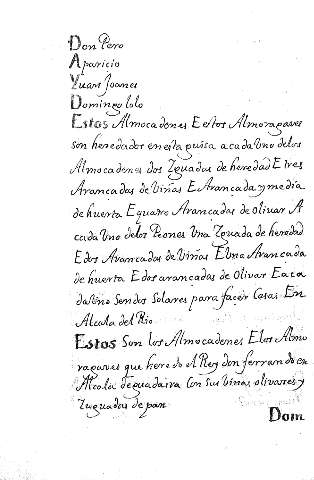 Don Pero
Aparicio
Yuan Joanes
Domingo lolo
Estos Almocadenes Eestos Almogaves
son heredados en esta guisa a cada Uno delos
Almocadenes dos Yguadas de heredad E tres
Arançadas de Viñas E Arançada y media
de huerta E quatro Arançadas de olivar A
cada Uno delos Peones Una Yguada de heredad
E dos Arançadas de Viñas E Una Arançada
de huerta E dos arançadas de Olivar E a ca
da Uno sendos Solares para façer Casas En
Alcala del Rio
Estos Son los Almocadenes E los Almo
gaves que heredo el Rey don ferrando en
Alcala de guadaira Con sus Viñas olivares y
Yuguadas de pan
Dom